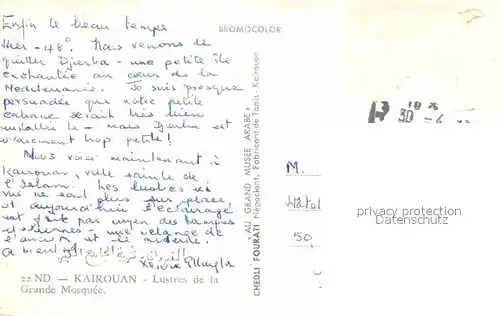 Enfin le beau temps
Hier - 48°. Nous venons de
quitter Djerba - une petite île
enchantée au cœur de la
Mediterranée. Je suis presque
persuadée que notre petite
cabane serait très bien
installée là - mais Djerba est
vraiment trop petite!
Nous voici maintenant à
Kairouan, ville sainte de
l'Islam. Les lustres ici
vus ne sont plus sur place
et aujourd'hui l'éclairage
est fait par moyen des lampes
- une mélange de
l'ancien et le moderne.
A bientôt
22 ND — KAIROUAN - Lustres de la
Grande Mosquée.
BROMOCOLOR
« AU GRAND MUSEE ARABE »
CHEDLI FOURATI Négociant, Fabricant de Tapis - Kairouan
R
30 - 4
M.
Hôtel
50
privacy protection
Datenschutz